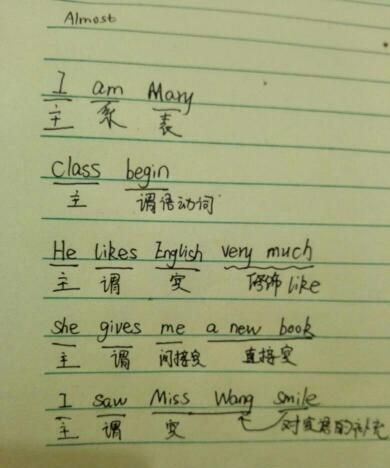 Almost
I am Mary
主 系 表
Class begin
主 谓语动词
He likes English very much
主 谓 宾 修饰like
she gives me a new book
主 谓 间接宾 直接宾
I saw Miss Wang smile
主 谓 宾 对宾语的补充